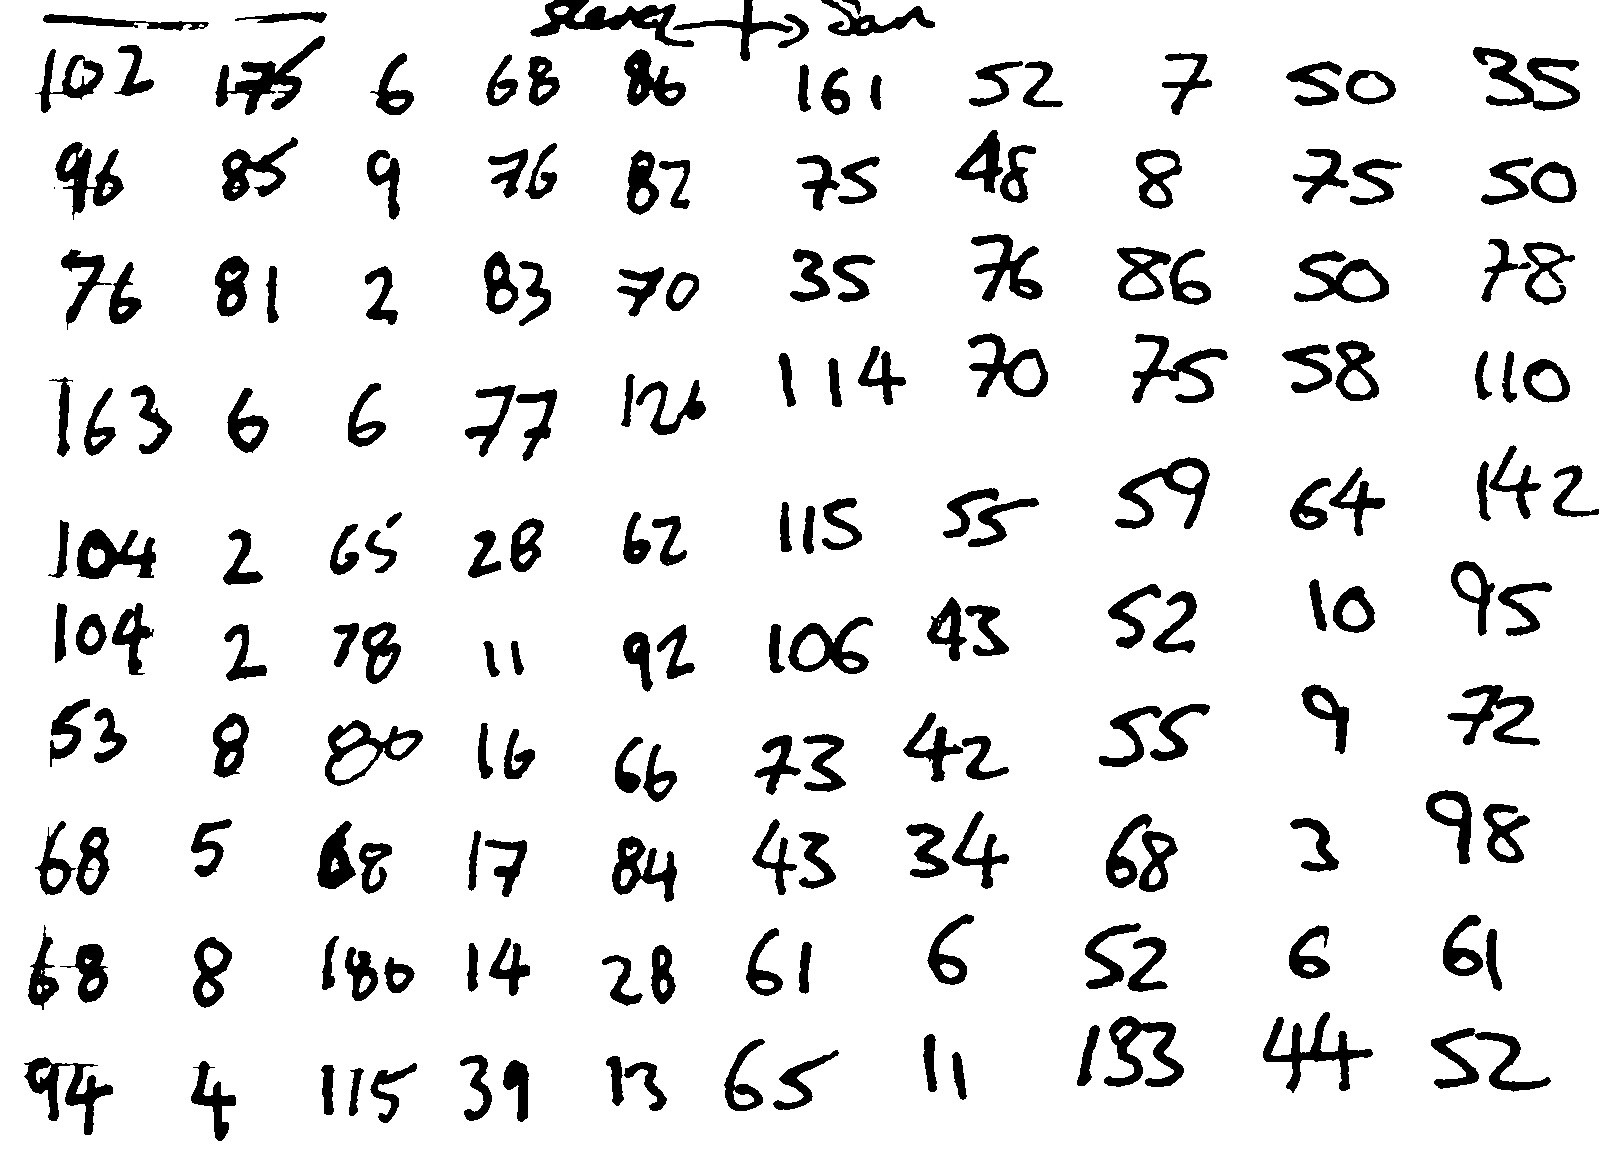 Steve ←→ Sam
102 175 6 68 86 161 52 7 50 35
96 85 9 76 82 75 48 8 75 50
76 81 2 83 70 35 76 86 50 78
163 6 6 77 126 114 70 75 58 110
104 2 65 28 62 115 55 59 64 142
104 2 78 11 92 106 43 52 10 95
53 8 80 16 66 73 42 55 9 72
68 5 68 17 84 43 34 68 3 98
68 8 180 14 28 61 6 52 6 61
94 4 115 39 13 65 11 133 44 52